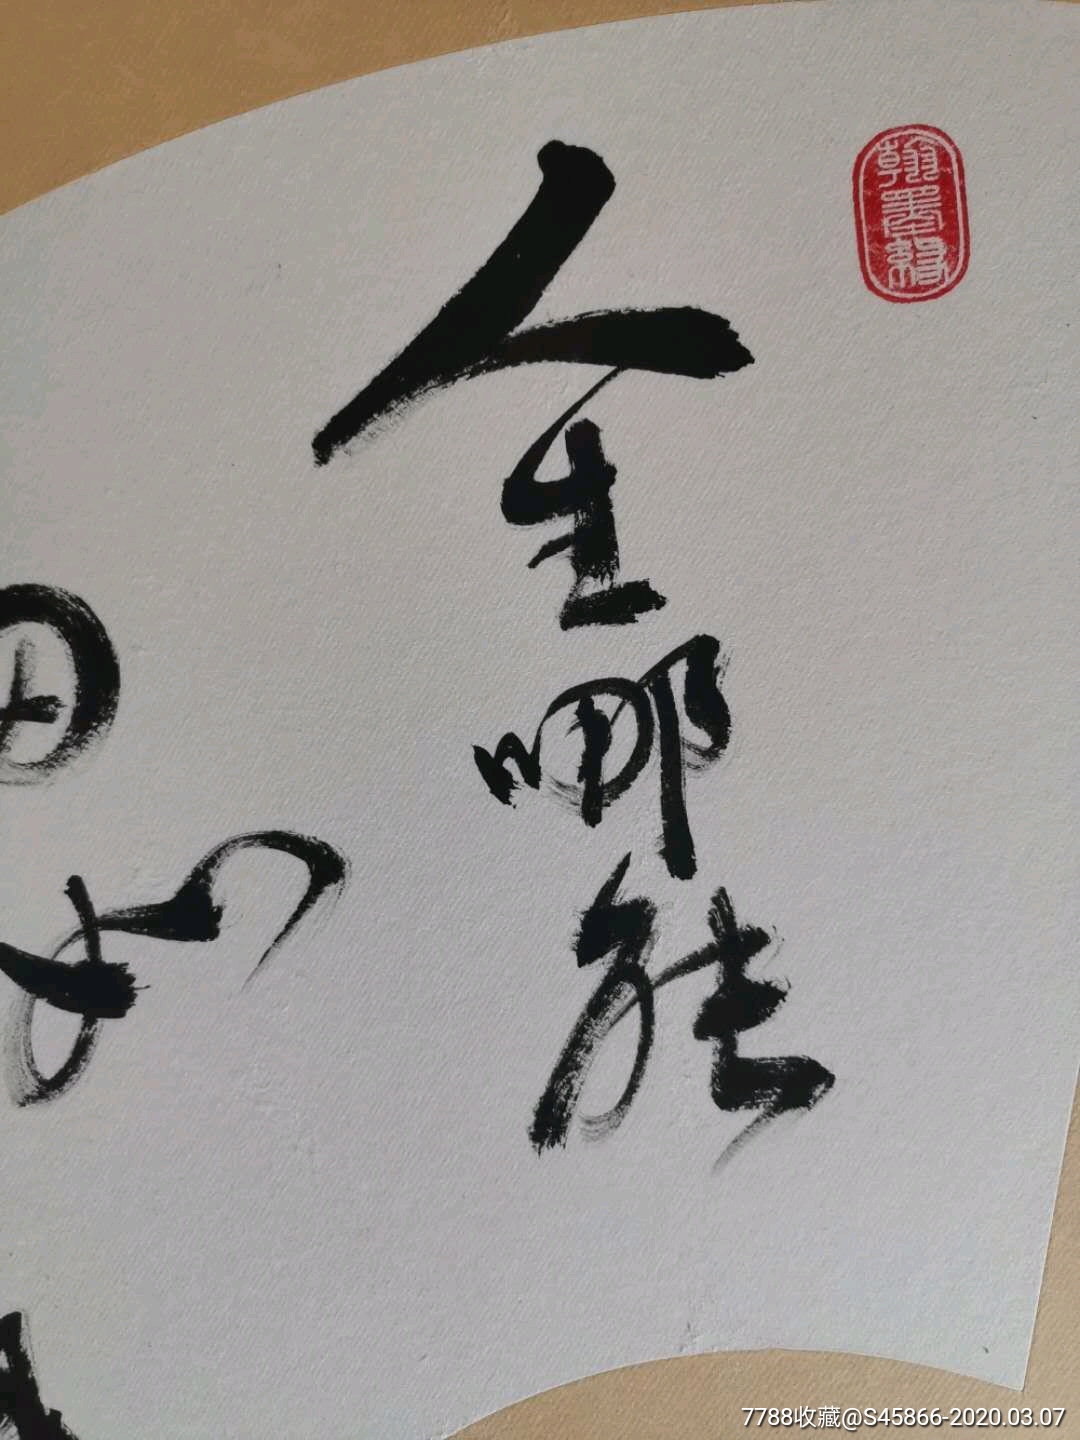 翰墨缘
人生哪能
如
7788收藏@S45866-2020.03.07